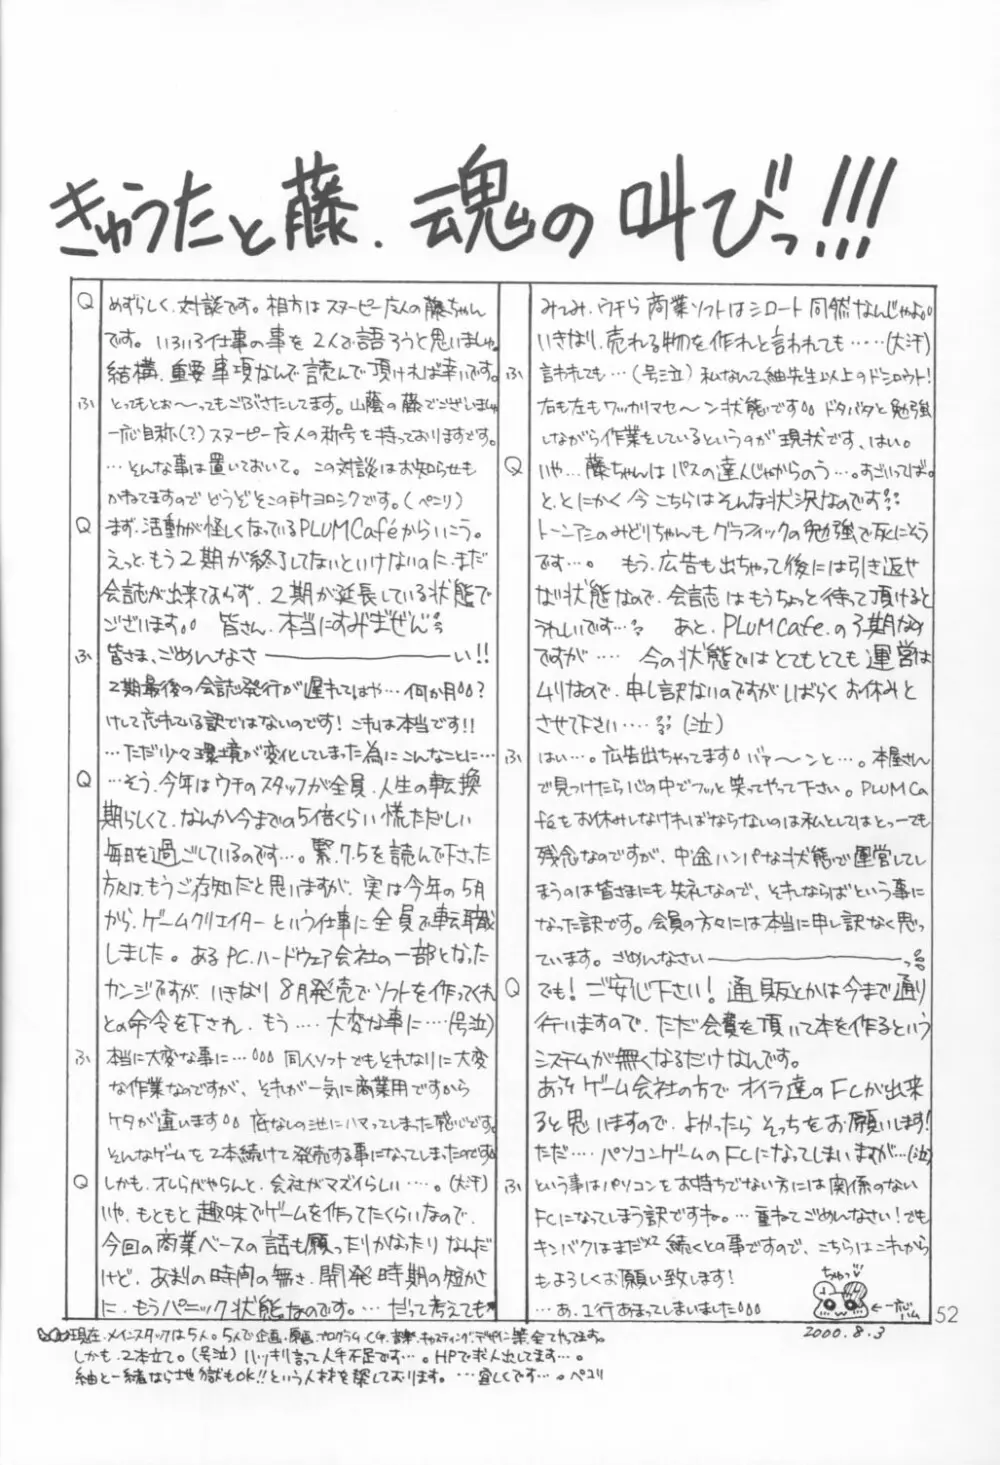 きゅうたと藤、魂の叫びっ!!!
Q めずらしく、対談です。相方はスヌーピー友人の藤ちゃん
です。いろいろ仕事の事を2人で語ろうと思いましゅ。
結構、重要事項なんで読んで頂ければ幸いです。
ふ とってもとお〜ってもごぶさたしてます。山蔭の藤でございましゅ
一応自称(?)スヌーピー友人の称号を持っておりますです。
…そんな事は置いておいて。この対談はお知らせも
かねてますのでどうぞそこの所ヨロシクです。(ペこり)
Q まず、活動が怪しくなっているPLUM Caféからいこう。
えっと、もう2期が終了してないといけないのに、まだ
会誌が出来ておらず、2期が延長している状態で
ございます。。皆さん、本当にすみませぜん
ふ 皆さま、ごめんなさ――――――い!!
2期最後の会誌発行が遅れてはや…何か月。。?
けして忘れている訳ではないのです!これは本当です!!
…ただ少々環境が変化してしまった為にこんなことに…
Q …そう、今年はウチのスタッフが全員、人生の転換
期らしくて、なんか今までの5倍くらい慌ただしい
毎日を過ごしているのです…。緊、7.5を読んで下さった
方々は、もうご存知だと思いますが、実は今年の5月
から、ゲームクリエイターという仕事に全員で転職
しました。あるPC.ハードウェア会社の一部となった
カンジですが、いきなり8月発売でソフトを作ってくれ
との命令を下され、もう…大変な事に…(号泣)
ふ 本当に大変な事に…。。。同人ソフトでもそれなりに大変
な作業なのですが、それが一気に商業用ですから
ケタが違います。。底なしの池にハマってしまった感じです。
そんなゲームを2本続けて発売する事になってしまったのです
Q しかも、オレらがやらんと、会社がマズイらしい…。(大汗)
いや、もともと趣味でゲームを作ってたくらいなので、
今回の商業ベースの話も願ったりかなったりなんだ
けど、あまりの時間の無さ、開発時期の短かさ
に、もうパニック状態なのです。…だって考えても
みつみ、ウチら商業ソフトはシロート同然なんじゃよ。。
いきなり、売れる物を作れと言われても……(大汗)
ふ 言われても…(号泣)私なんて紬先生以上のドシロウト!
右も左もワッカリマセ〜ン状態です。。ドタバタと勉強
しながら作業をしているというのが現状です、はい。
Q いや…藤ちゃんはパスの達人じゃからのう…。すごいってば。
と、とにかく今こちらはそんな状況なのです
トーンアシのみどりちゃんもグラフィックの勉強で死にそう
です…。もう、広告も出ちゃって後には引き返せ
ない状態なので、会誌はもうちょっと待って頂けると
うれしいです…。あと、PLUM Cafe.の3期なの
ですが……今の状態ではとてもとても運営は
ムリなので、申し訳ないのですがしばらくお休みと
させて下さい……(泣)
ふ はい…。広告出ちゃってます。バァ〜ンと…。本屋さん
で見つけたら心の中でフッと笑ってやって下さい。PLUM Ca
féをお休みしなければならないのは私としてはとっーても
残念なのですが、中途ハンパな状態で運営してし
まうのは皆さまにも失礼なので、それならばという事に
なった訳です。会員の方々には本当に申し訳なく思っ
ています。ごめんなさい――――――っ
Q でも!ご安心下さい!通販とかは今まで通り
行いますので、ただ会費を頂いて本を作るという
システムが無くなるだけなんです。
あっそゲーム会社の方でオイラ達のFCが出来
ると思いますので、よかったらそっちをお願いします!
ただ…パソコンゲームのFCになってしまいますが…(泣)
ふ という事はパソコンをお持ちでない方には関係のない
FCになってしまう訳ですね。…重ねてごめんなさい!でも
キンバクはまだ×2続くとの事ですので、こちらはこれから
もよろしくお願い致します!
…あ、1行あまってしまいました。。。
ちゅっ
←一応ハム
2000.8.3
52
現在、メインスタッフは5人。5人で企画・原画・プログラム・CG・音楽・キャスティング・デザインに等、全てやってます。
しかも、2本立て。(号泣)ハッキリ言って人手不足です…。HPで求人出してます…。
紬と一緒なら地獄もOK!!という人材を探しております。…宜しくです…。ペコリ